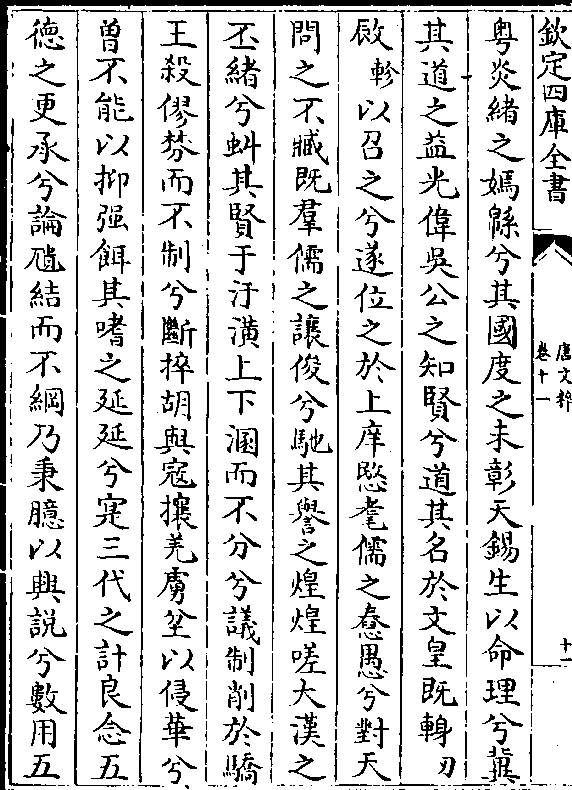 欽定四庫全書
唐文粹
卷十一
十一
粤炎緒之嫣緜兮其國度之未彰天錫生以命理兮冀
其道之益光偉吳公之知賢兮道其名於文皇既輶刃
啟軫以召之兮遂位之於上庠愍耄儒之憃愚兮對天
問之不臧既羣儒之讓俊兮馳其譽之煌煌嗟大漢之
丕緒兮蚪其賢于汙潢上下溷而不分兮議制削於驕
王殺僇棼而不制兮斷捽胡與寇攘羗虜坌以侵華兮
曽不能以抑强餌其嗜之延延兮寔三代之計良念五
徳之更承兮論尵結而不綱乃秉臆以興説兮數用五